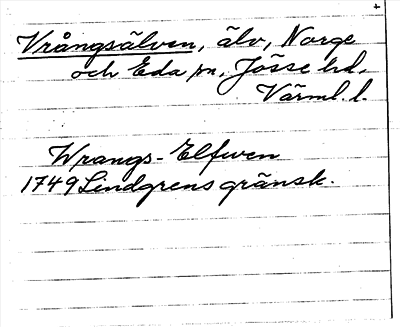 Vrångsälven, älv, Norge
och Eda sn, Jösse hd,
Värml. l.
Wrangs-Elfwen
1749 Lindgrens gränsk.